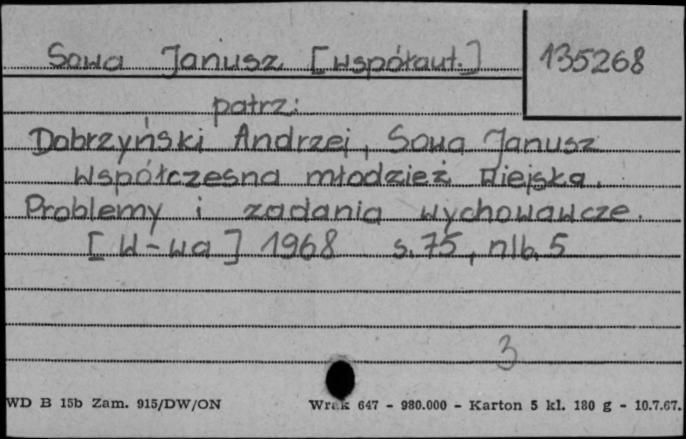 Sowa Janusz [współaut.] 135268
patrz:
Dobrzyński Andrzej, Sowa Janusz
Współczesna młodzież wiejska.
Problemy i zadania wychowawcze.
[W-wa] 1968 s. 75, nlb. 5
3
WD B 15b Zam. 915/DW/ON Wrak 647 - 980.000 - Karton 5 kl. 180 g - 10.7.67.